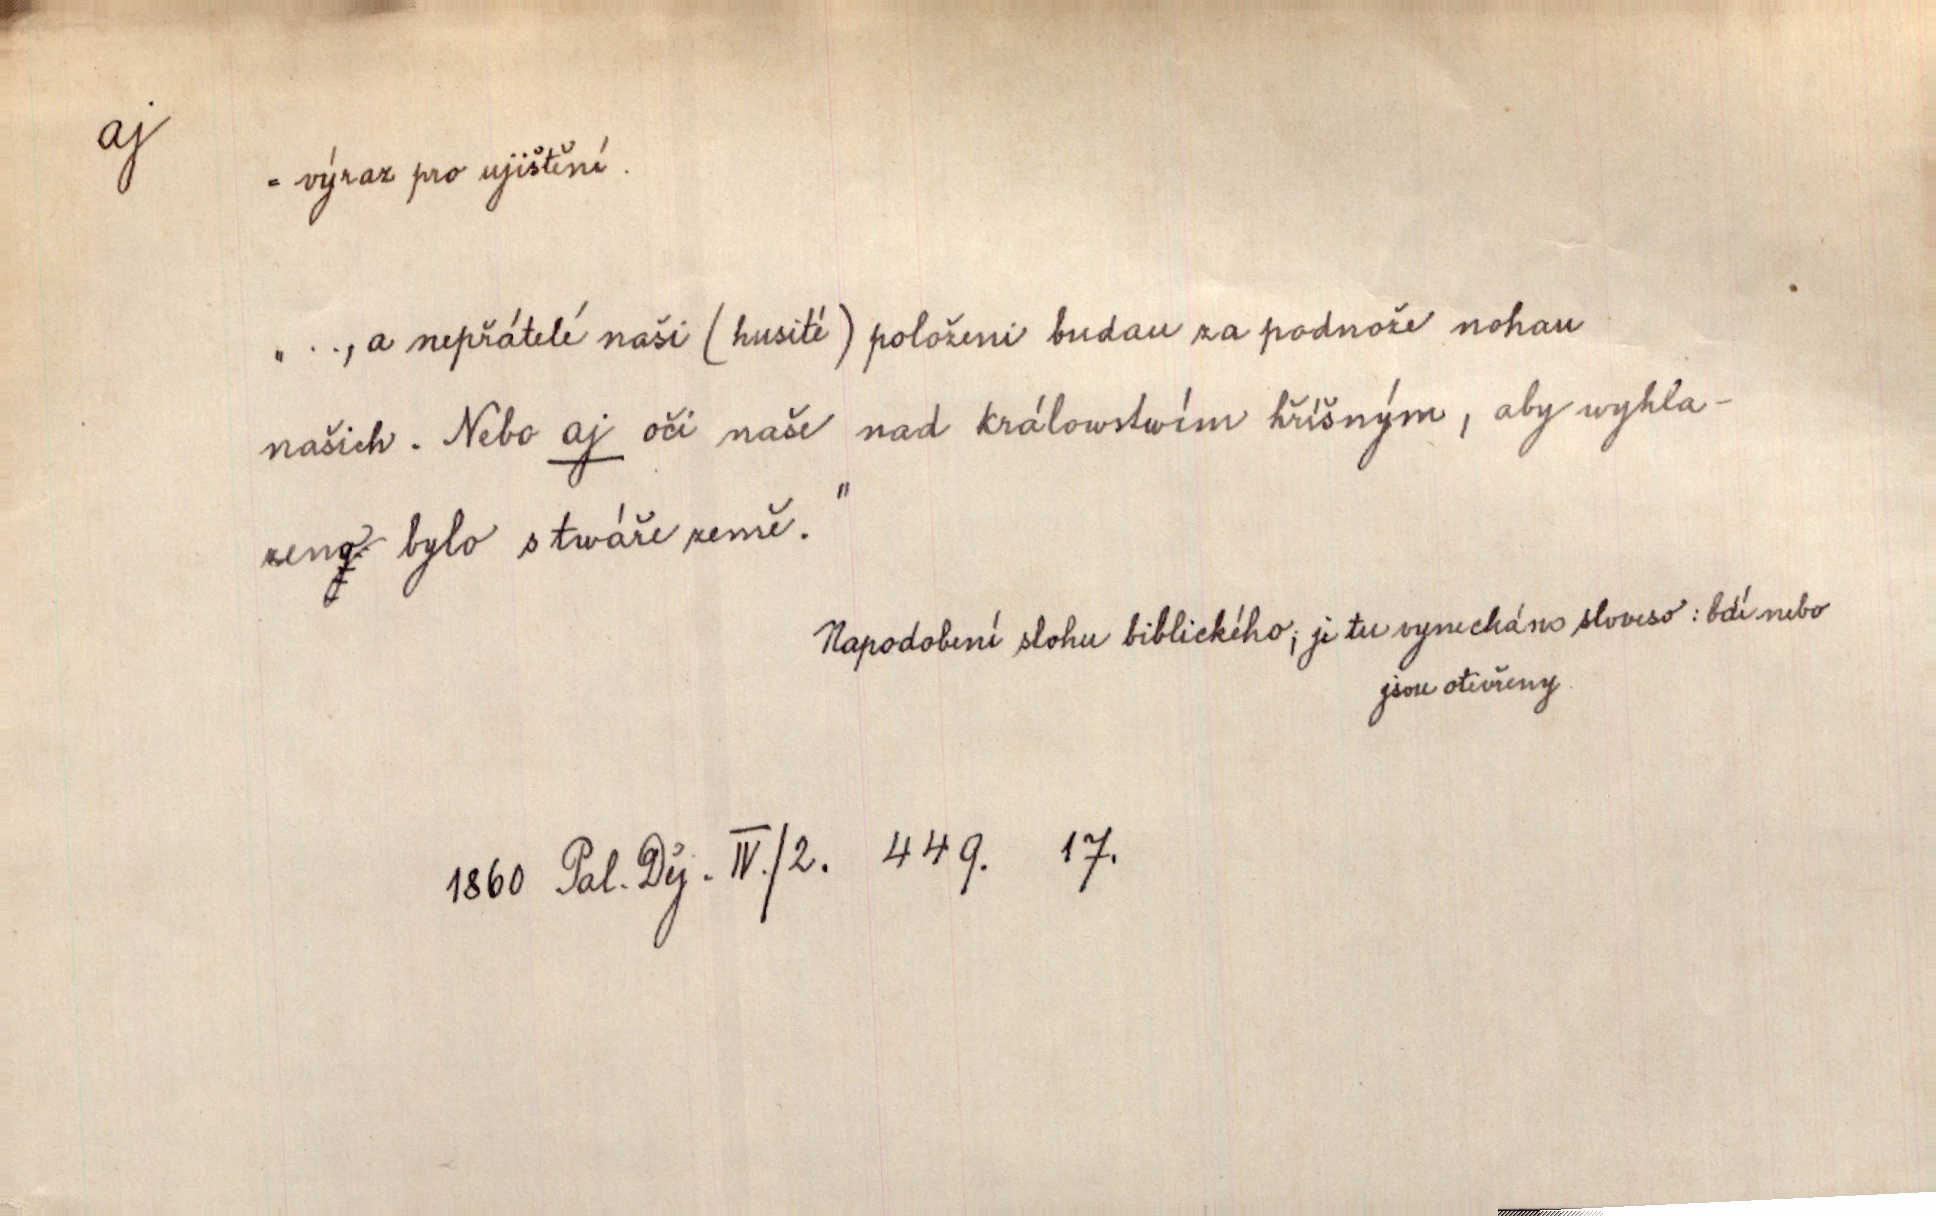 aj
= výraz pro ujištění.
„..., a nepřátelé naši (husité) položeni budau za podnože nohau
našich. Nebo aj oči naše nad králowstwím hříšným, aby wyhla-
zeno bylo s twáře země."
Napodobení slohu biblického; je tu vynecháno sloveso: bdí nebo
jsou otevřeny.
1860 Pal. Děj. IV./2. 449. 17.